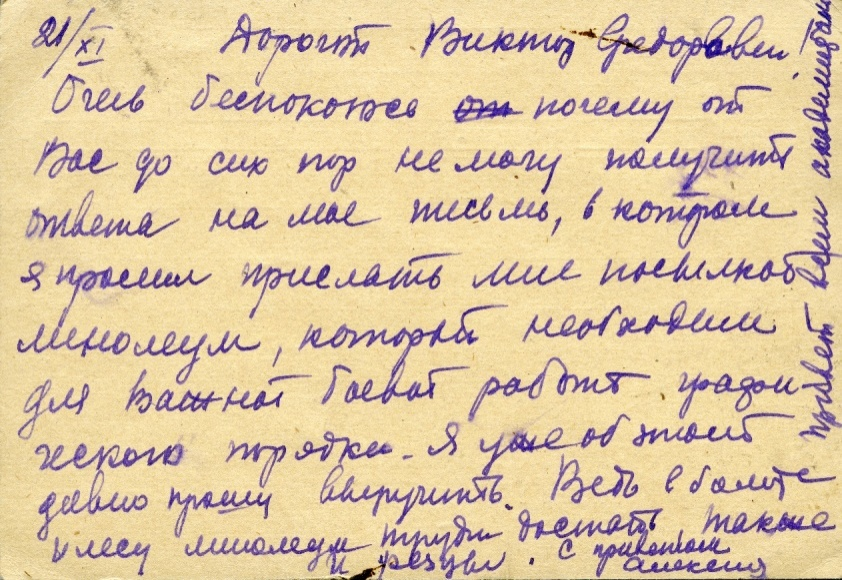 21/XI Дорогой Виктор Федорович!
Очень беспокоюсь почему от
Вас до сих пор не могу получить
ответа на мое письмо, в котором
я просил прислать мне посылкой
линолеум, который необходим
для важной боевой работы графи-
ческого порядка. Я уже об этом
давно прошу выручить. Ведь в болоте
и лесу линолеум трудно достать также
и резцы. С приветом
Алексей
Привет всем академикам